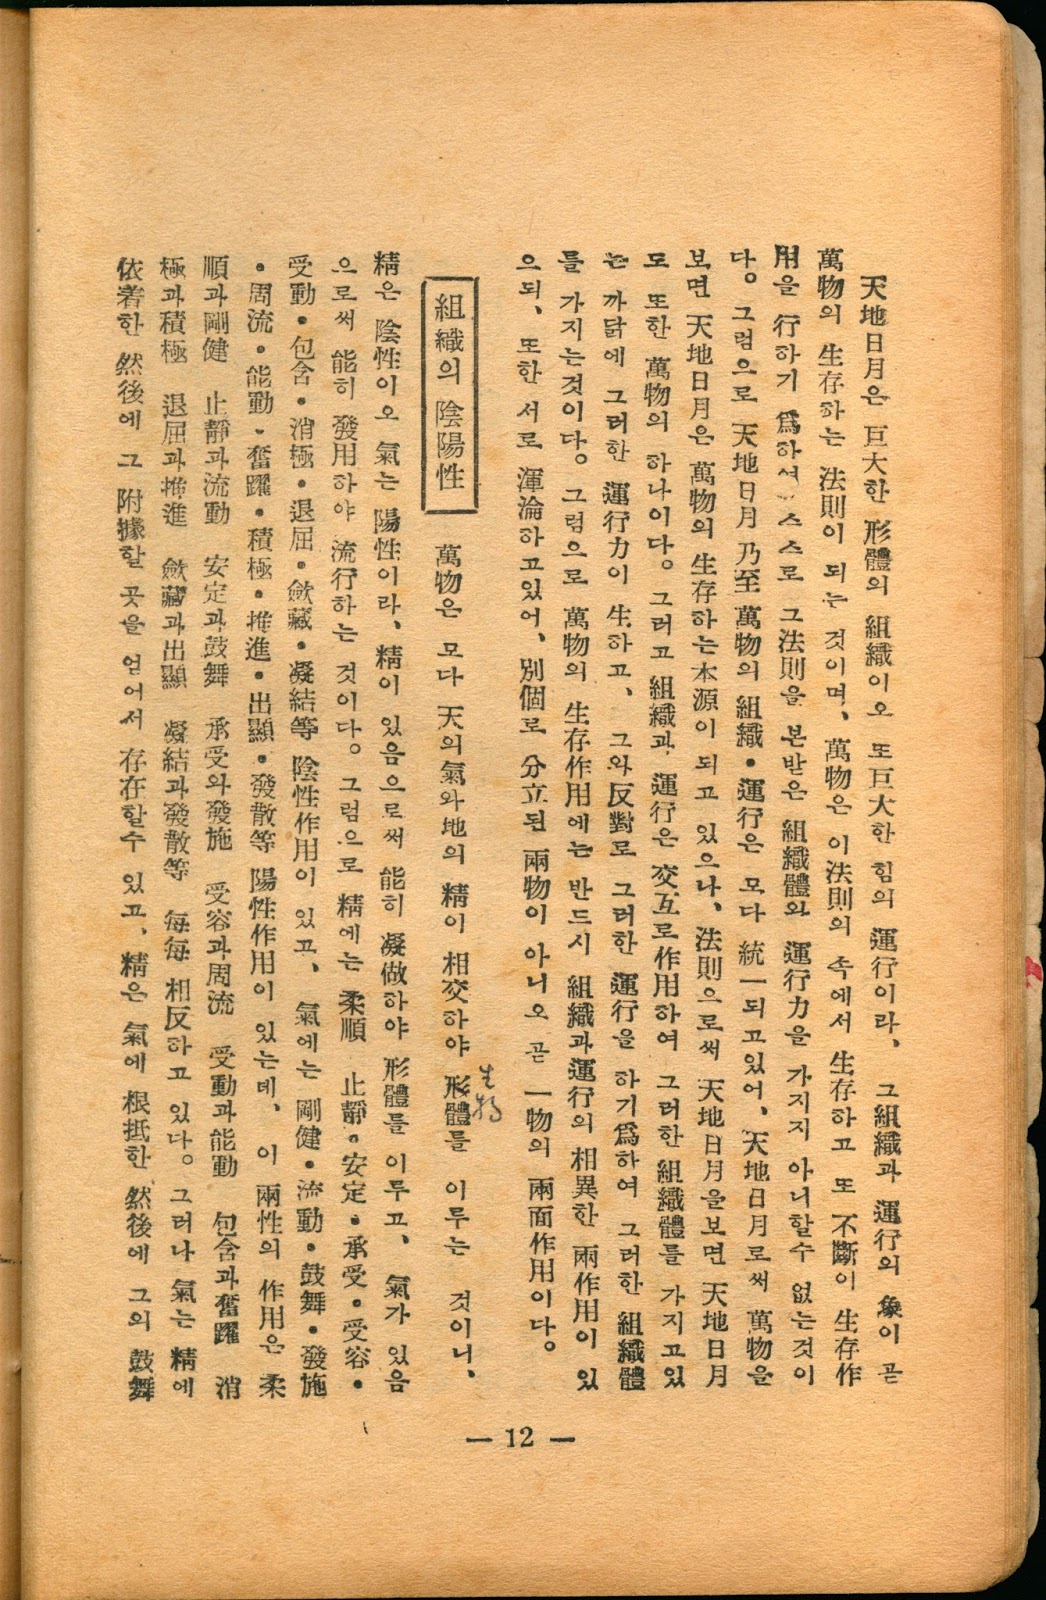 天地日月은 巨大한 形體의 組織이오 또巨大한 힘의 運行이라、 그組織과 運行의 象이 곧
萬物의 生存하는 法則이 되는 것이며、萬物은 이法則의 속에서 生存하고 또 不斷이 生存作
用을 行하기 爲하여 스스로 그法則을 본받은 組織體와 運行力을 가지지 아니할수 없는것이
다。그럼으로 天地日月 乃至 萬物의 組織•運行은 모다 統一되고있어、天地日月로써 萬物을
보면 天地日月은 萬物의 生存하는本源이 되고 있으나、法則으로써 天地日月을보면 天地日月
도 또한 萬物의 하나이다。그러고 組織과 運行은 交互로作用하여 그러한 組織體를 가지고있
는 까닭에 그러한 運行力이 生하고、 그와反對로 그러한 運行을 하기爲하여 그러한 組織體
를 가지는것이다。그럼으로 萬物의 生存作用에는 반드시 組織과運行의 相異한 兩作用이 있
으되、또한 서로 渾淪하고있어、別個로 分立된 兩物이 아니오 곧 一物의 兩面作用이다。
組織의 陰陽性
萬物은 모다 天의氣와地의 精이 相交하야 形體를 이루는 것이니、
生物
精은 陰性이오 氣는 陽性이라、精이 있음으로써 能히 凝做하야 形體를 이루고、氣가 있음
으로써 能히 發用하야 流行하는 것이다。그럼으로 精에는 柔順 止靜•安定•承受•受容•
受動•包含•消極•退屈•斂藏•凝結等 陰性作用이 있고、 氣에는 剛健•流動•鼓舞•發施
•周流•能動•奮躍•積極•推進•出顯•發散等 陽性作用이 있는데、 이 兩性의 作用은 柔
順과剛健 止靜과流動 安定과鼓舞 承受와發施 受容과周流 受動과能動 包含과奮躍 消
極과積極 退屈과推進 斂藏과出顯 凝結과發散等 每每 相反하고 있다。그러나 氣는 精에
依着한 然後에 그 附據할 곳을 얻어서 存在할수 있고、精은 氣에 根抵한 然後에 그의 鼓舞
— 12 —